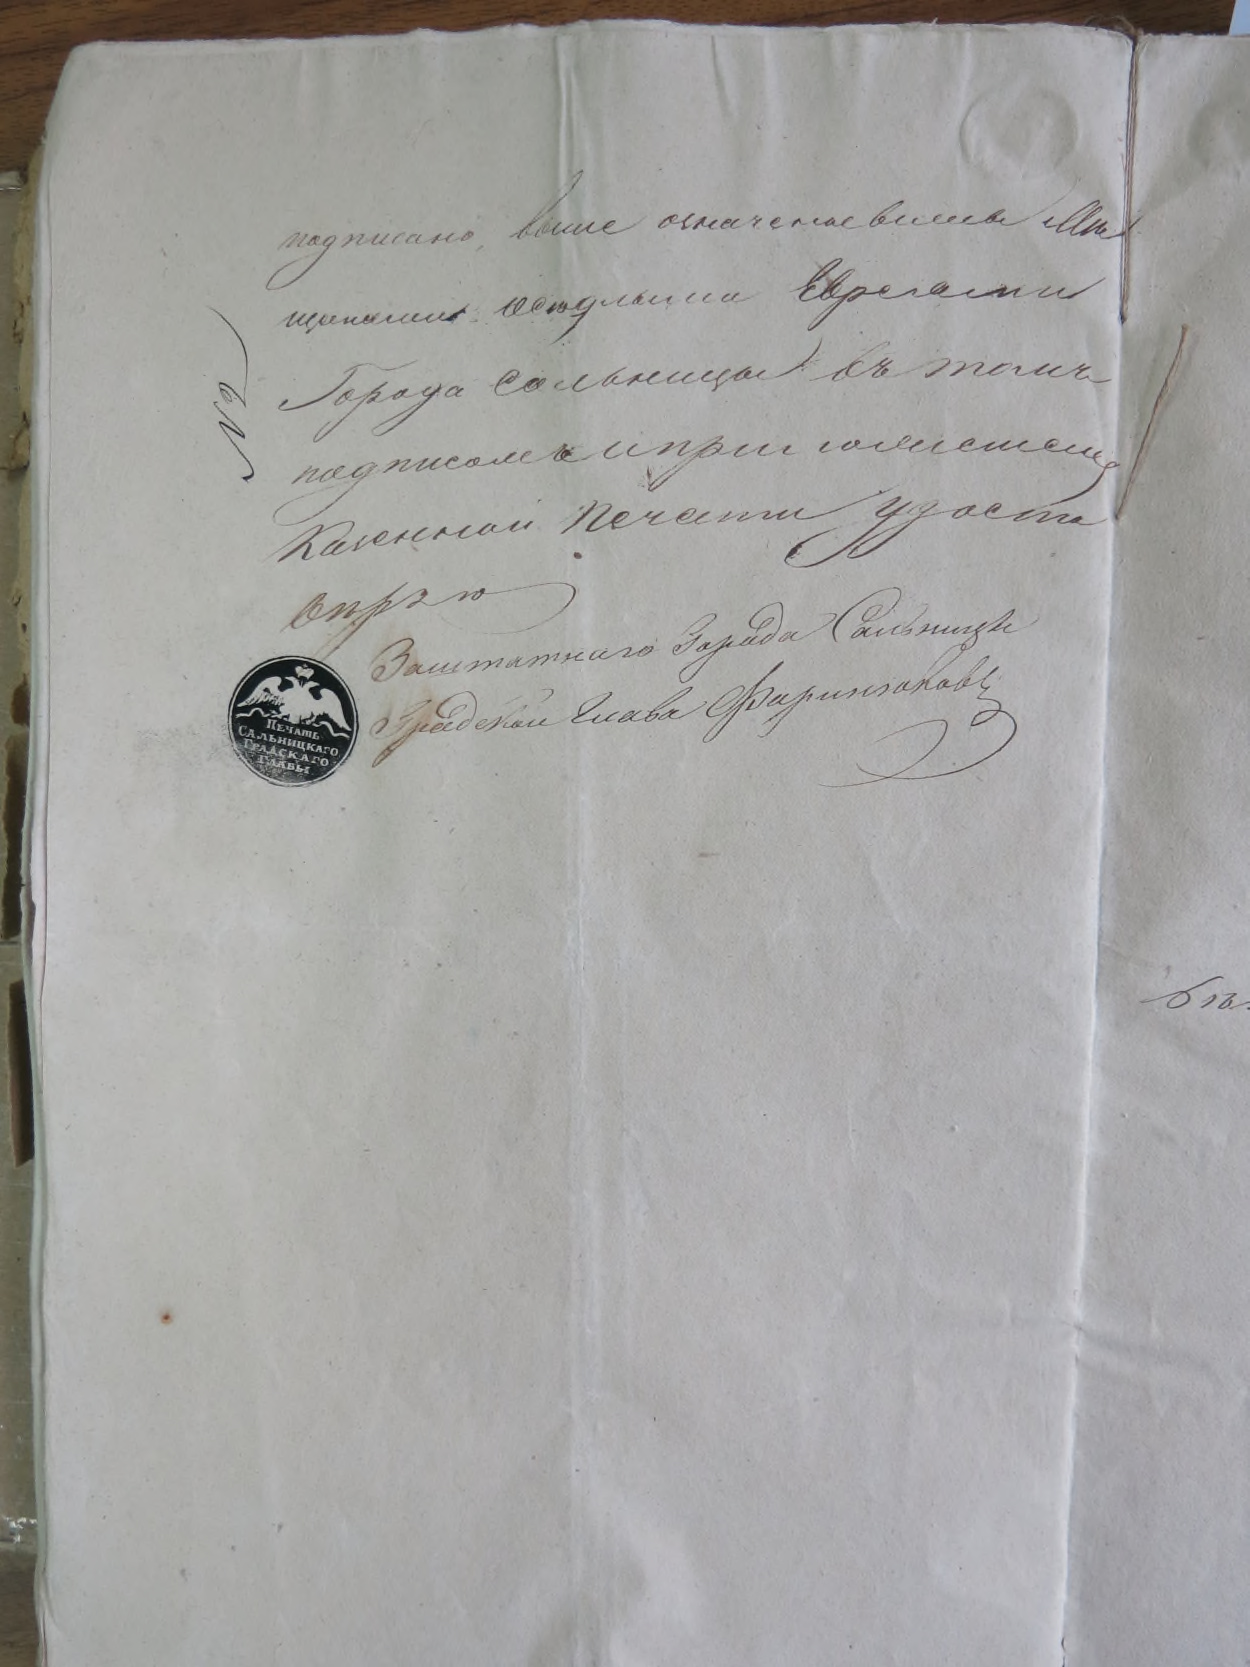 подписано, выше означеневыемы Мѣ
щанами оседлыми Евреями
Города Сальницы въ томъ
подписомъ и при
Казенной Печати удосто
вѣряю
№
Заштатнаго Города Сальницы
Градской Глава
ПЕЧАТЬ
САЛЬНИЦКАГО
ГРАДСКАГО
ГЛАВЫ